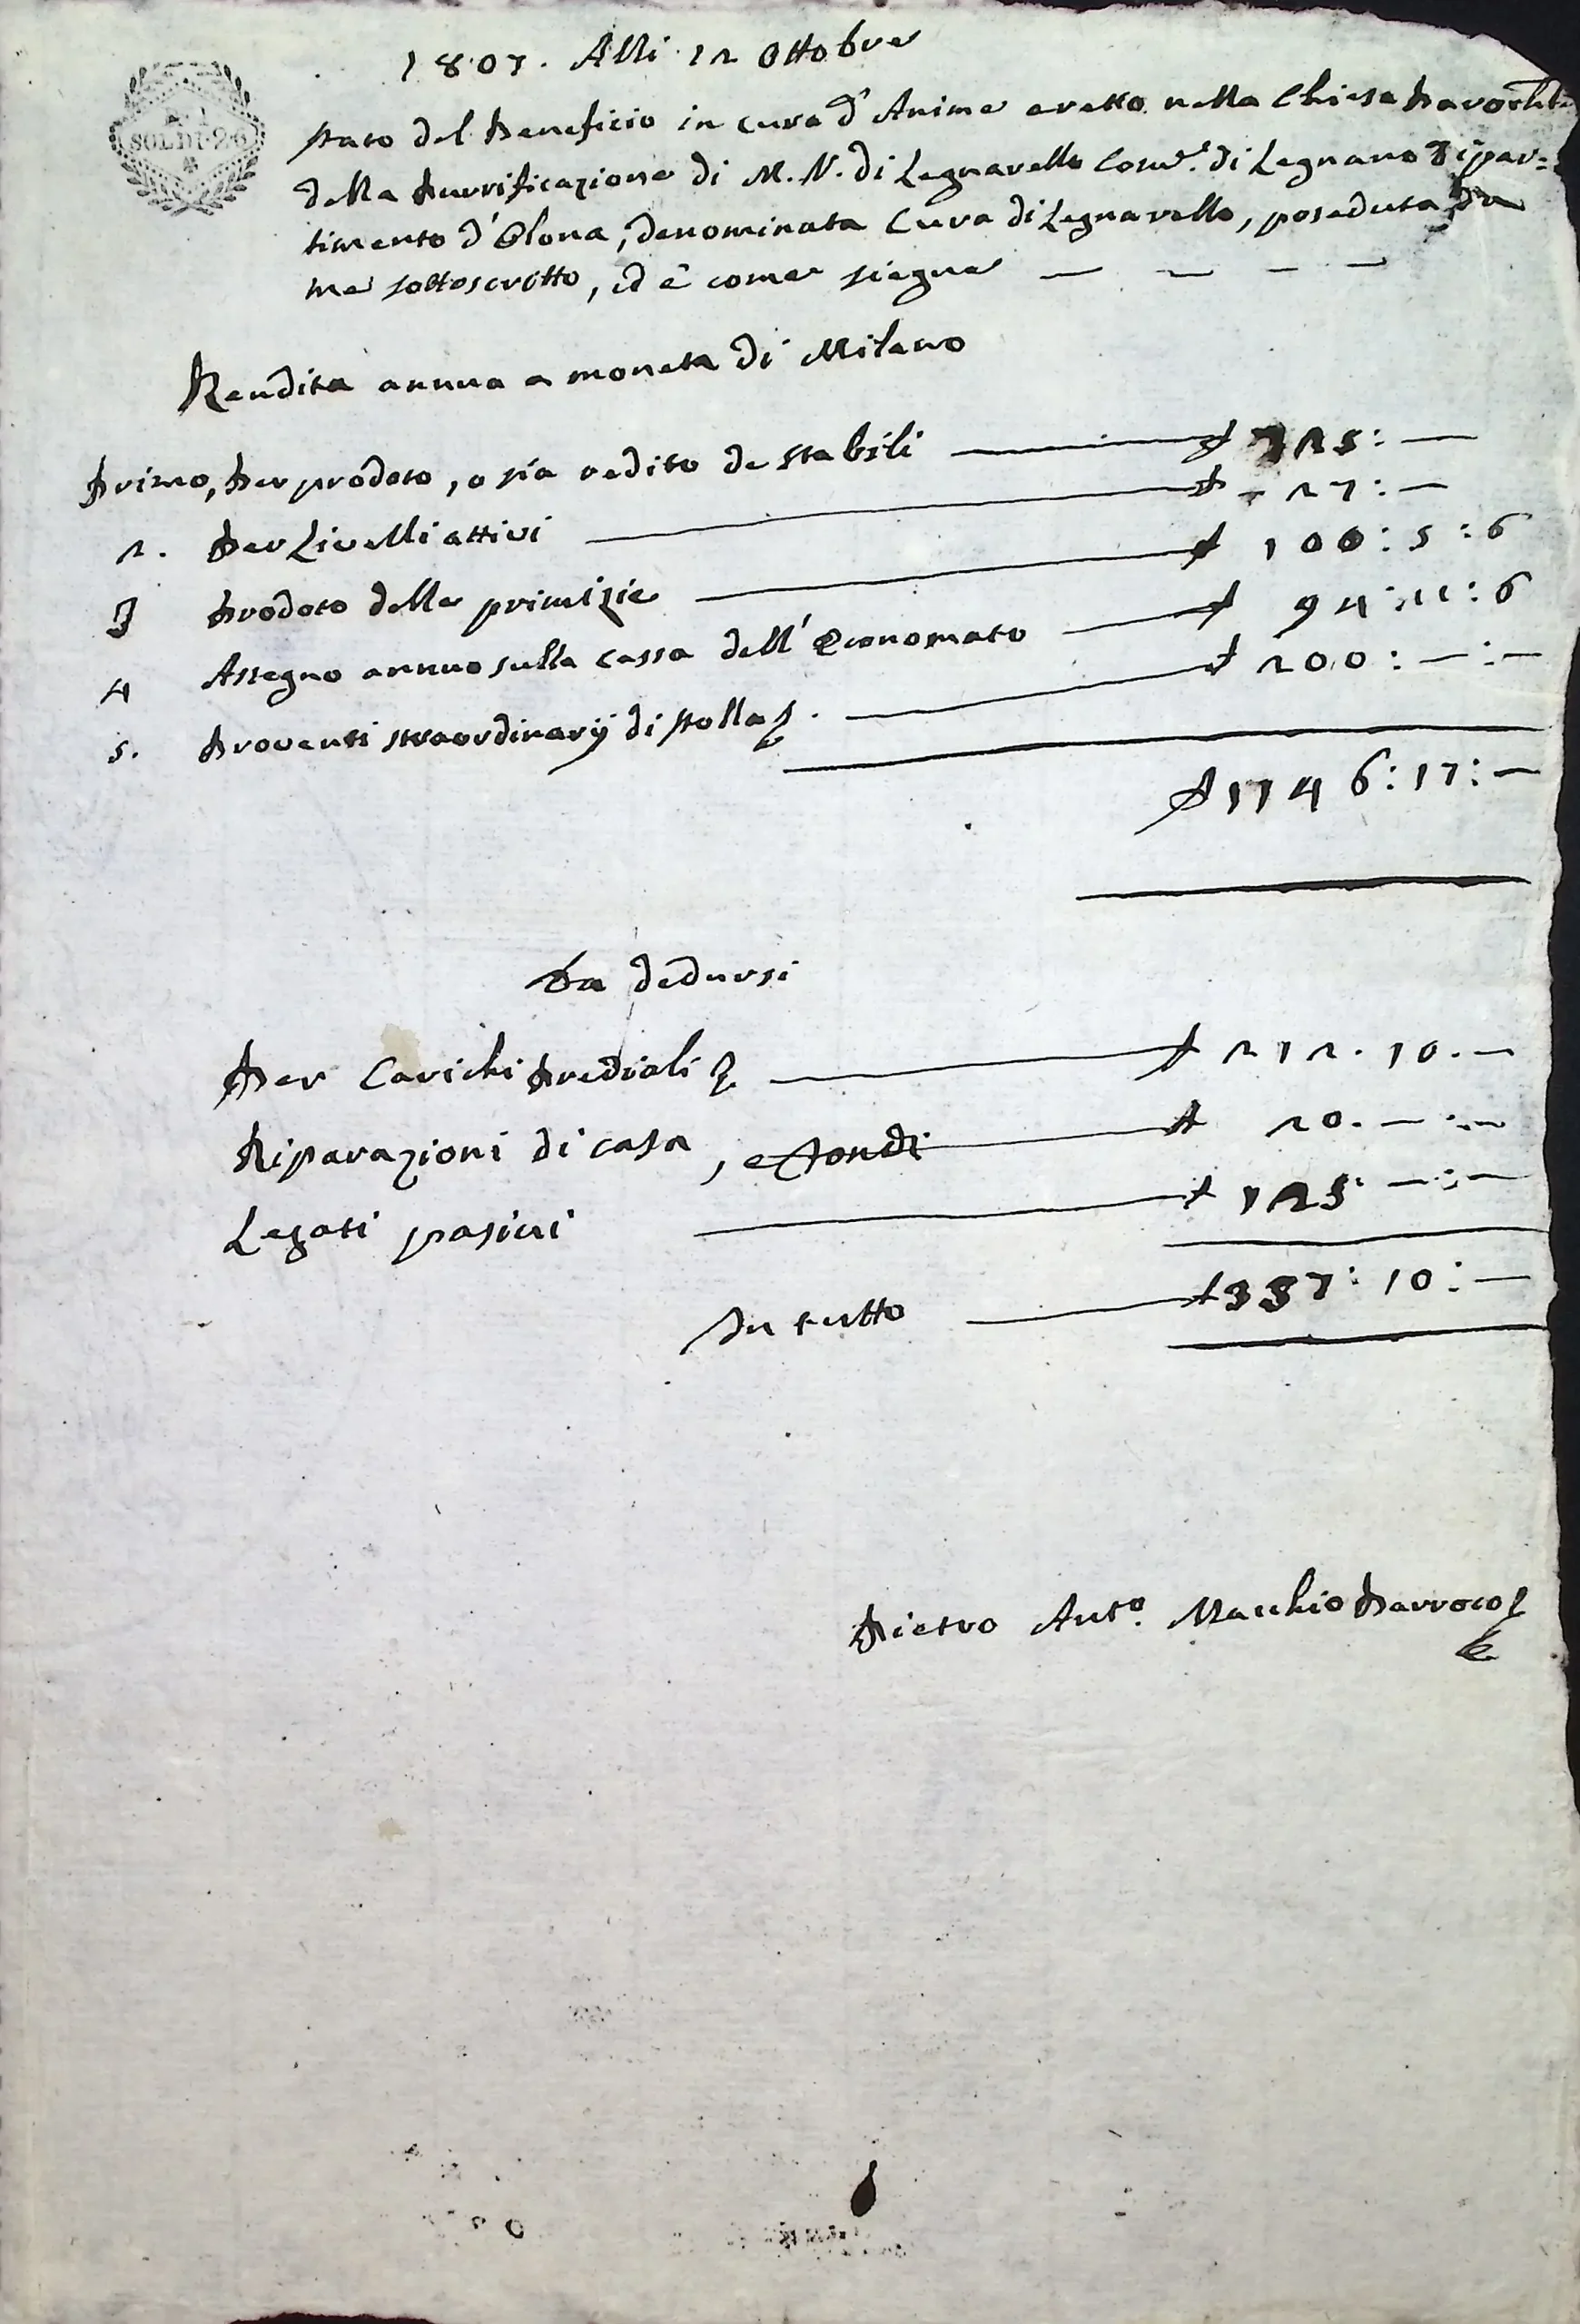 1807. Alli 12 Ottobre
SOLDI·26
Stato del Beneficio in cura d'Anime eretto nella Chiesa Paroch.le
della Purrificazione di M. V. di Legnarello Comu.e di Legnano Dipar=
timento d'Olona, denominata Cura di Legnarello, poseduta da
me sottoscritto, ed è come siegue — — — —
Rendita annua a moneta di Milano
Primo, Per prodoto, o sia redito de stabili — £ 725:—
2. Per Livelli attivi — £ 27:—
3 Prodoto delle primizie — £ 100:5:6
4 Assegno annuo sulla cassa dell'Economato — £ 94:11:6
5. Proventi straordinarij di stolla. — £ 200:—:—
£ 1146:17:—
Da dedursi
Per Carichi Prediali — £ 212.10.—
Riparazioni di casa, e fondi — £ 20.—:—
Legati pasivi — £ 125 —:—
In tutto — £ 357:10:—
Pietro Ant.o Macchio Parroco